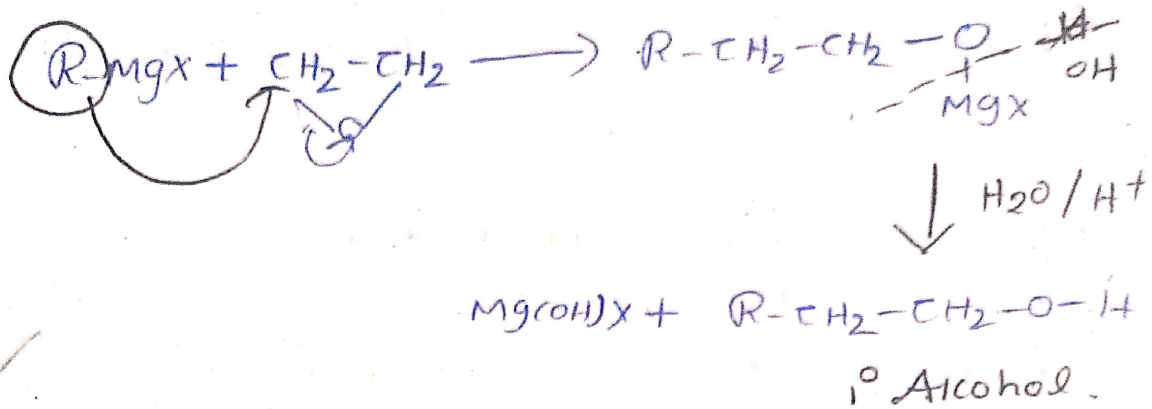 R-MgX + CH2-CH2 ⟶ R-CH2-CH2-O H
O + OH
MgX
H2O/H+
Mg(OH)X + R-CH2-CH2-O-H
1° Alcohol.